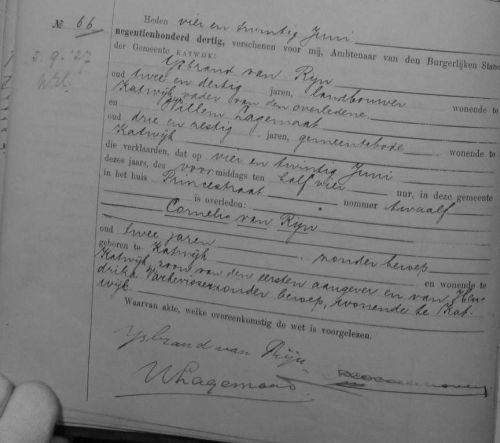 No 66
Heden vier en twintig Juni
negentienhonderd dertig, verschenen voor mij, Ambtenaar van den Burgerlijken Stand
der Gemeente KATWIJK:
Ysbrand van Rijn
oud twee en dertig jaren, landbouwer wonende te
Katwijk, vader van den overledene
en Willem Lagemaat
oud drie en zestig jaren, gemeentebode wonende te
Katwijk
die verklaarden, dat op vier en twintig Juni
dezes jaars, des voormiddags ten half vier uur, in deze gemeente
in het huis Princestraat nommer twaalf
is overleden:
Cornelis van Rijn
oud twee jaren zonder beroep
geboren te Katwijk en wonende te
Katwijk, zoon van den eersten aangever en van Hen-
drika zonder beroep, wonende te Kat-
wijk
Waarvan akte, welke overeenkomstig de wet is voorgelezen.
Ysbrand van Rijn
WLagemaat